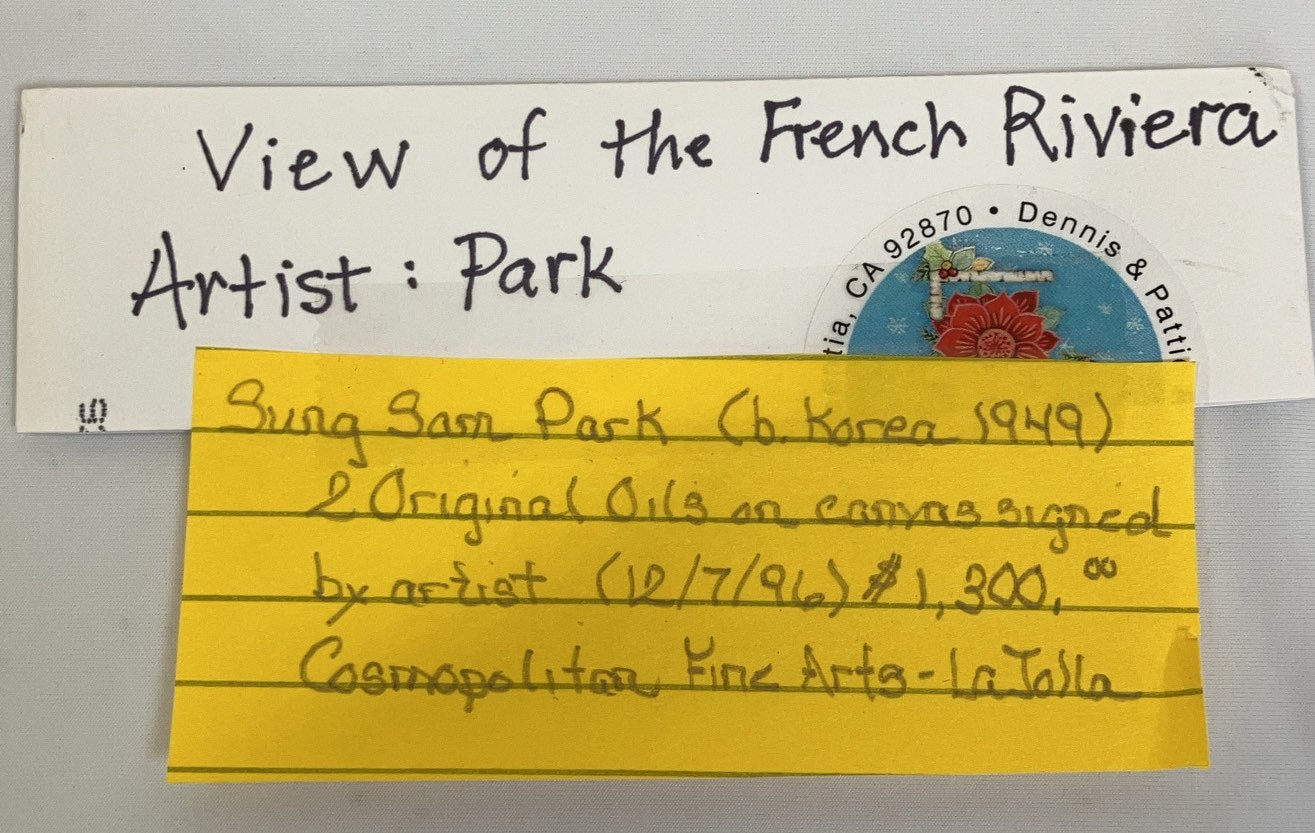 View of the French Riviera
Artist: Park
tia, CA 92870 • Dennis & Patti
Sung Sam Park (b. Korea 1949)
2 Original Oils on canvas signed
by artist (12/7/96) $1,300.00
Cosmopolitan Fine Arts - La Jolla